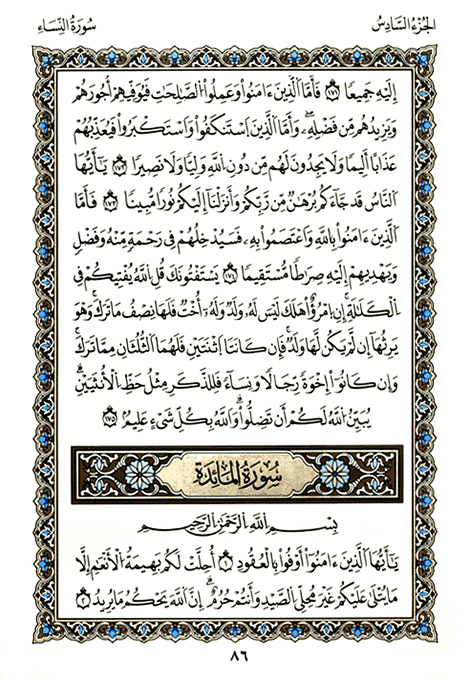 الجُزْءُ السَّادِسُ
سُورَةُ النِّسَاءِ
إِلَيْهِ جَمِيعًا ١٧١ فَأَمَّا الَّذِينَ ءَامَنُوا وَعَمِلُوا الصَّٰلِحَٰتِ فَيُوَفِّيهِمُ أُجُورَهُمْ
وَيَزِيدُهُم مِّن فَضْلِهِۦ وَأَمَّا الَّذِينَ اسْتَنكَفُوا وَاسْتَكْبَرُوا فَيُعَذِّبُهُمْ
عَذَابًا أَلِيمًا وَلَا يَجِدُونَ لَهُم مِّن دُونِ اللَّهِ وَلِيًّا وَلَا نَصِيرًا ١٧٢ يَٰٓأَيُّهَا
النَّاسُ قَدْ جَآءَكُم بُرْهَٰنٌ مِّن رَّبِّكُمْ وَأَنزَلْنَآ إِلَيْكُمْ نُورًا مُّبِينًا ١٧٣ فَأَمَّا
الَّذِينَ ءَامَنُوا بِاللَّهِ وَاعْتَصَمُوا بِهِۦ فَسَيُدْخِلُهُمْ فِى رَحْمَةٍ مِّنْهُ وَفَضْلٍ
وَيَهْدِيهِمْ إِلَيْهِ صِرَٰطًا مُّسْتَقِيمًا ١٧٤ يَسْتَفْتُونَكَ قُلِ اللَّهُ يُفْتِيكُمْ فِى
الْكَلَٰلَةِ إِنِ امْرُؤٌا هَلَكَ لَيْسَ لَهُۥ وَلَدٌ وَلَهُۥٓ أُخْتٌ فَلَهَا نِصْفُ مَا تَرَكَ وَهْوَ
يَرِثُهَآ إِن لَّمْ يَكُن لَّهَا وَلَدٌ فَإِن كَانَتَا اثْنَتَيْنِ فَلَهُمَا الثُّلُثَانِ مِمَّا تَرَكَ
وَإِن كَانُوٓا إِخْوَةً رِّجَالًا وَنِسَآءً فَلِلذَّكَرِ مِثْلُ حَظِّ الْأُنثَيَيْنِ
يُبَيِّنُ اللَّهُ لَكُمْ أَن تَضِلُّوا وَاللَّهُ بِكُلِّ شَىْءٍ عَلِيمٌ ١٧٥
سُورَةُ المَائِدَةِ
بِسْمِ اللَّهِ الرَّحْمَٰنِ الرَّحِيمِ
يَٰٓأَيُّهَا الَّذِينَ ءَامَنُوٓا أَوْفُوا بِالْعُقُودِ ١ أُحِلَّتْ لَكُم بَهِيمَةُ الْأَنْعَٰمِ إِلَّا
مَا يُتْلَىٰ عَلَيْكُمْ غَيْرَ مُحِلِّى الصَّيْدِ وَأَنتُمْ حُرُمٌ إِنَّ اللَّهَ يَحْكُمُ مَا يُرِيدُ ٢
٨٦